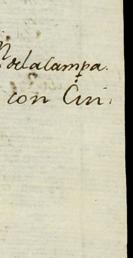 delacampa.
con Cin